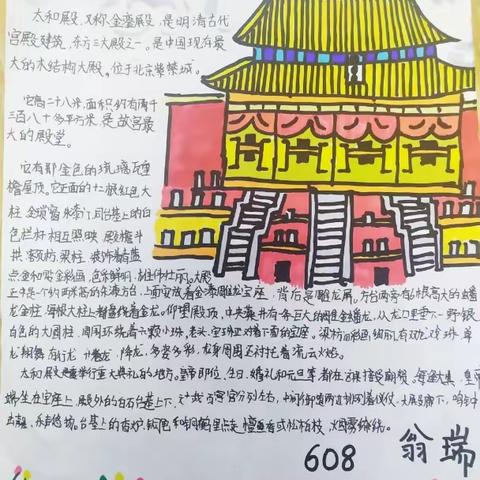 太和殿,又称金銮殿,是明清古代
宫殿建筑,东方三大殿之一。是中国现存最
大的木结构大殿。位于北京紫禁城。
它高二十八米,面积约有两千
三百八十多平方米,是故宫最
大的殿堂。
它有那金色的琉璃瓦重
檐屋顶。它正面的十二根红色大
柱,金琐窗,朱漆门,同台基上的白
色栏杆相互照映,殿檐斗
拱、额枋、梁柱,装饰着青蓝
点金和贴金彩画,色彩鲜明,雄伟壮丽。大殿
正中是一个约两米高的朱漆方台,上面安放着金漆雕龙宝座,背后是雕龙屏,方台两旁有六根高大的蟠
龙金柱,每根大柱上盘绕着金龙。仰望殿顶,中央藻井有一条巨大的雕金蟠龙,从龙口里垂下一颗银
白色的大圆珠,周围环绕着六颗小珠,龙头、宝珠正对着下面的宝座。梁枋间彩画绚丽,有双龙戏珠、单
龙翔舞,有行龙、升龙、降龙,多姿多彩,龙身周围还衬托着流云火焰。
太和殿是举行重大典礼的地方。皇帝即位、生日、婚礼和元旦等都在这里接受朝贺。每逢大典,皇帝
端坐在宝座上,殿外的白石台基上下
608 翁瑞